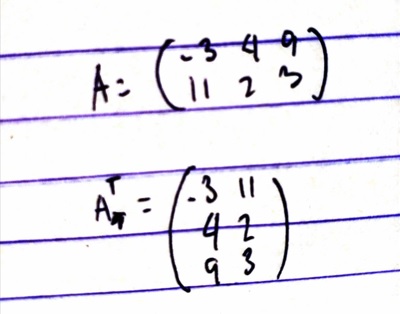 A = ( -3 4 9
11 2 3 )
Aᵀ = ( -3 11
4 2
9 3 )